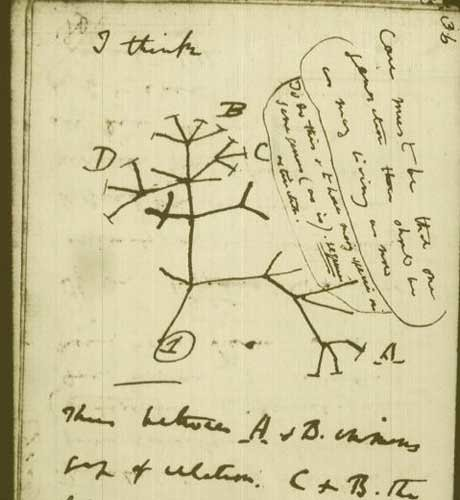 36
I think
Case must be that one
generation then should be
as many living as now
To do this & to have many species in
same genus (as is). requires
extinction.
B
C
D
A
1
Thus between A & B. immens
gap of relation. C & B. the